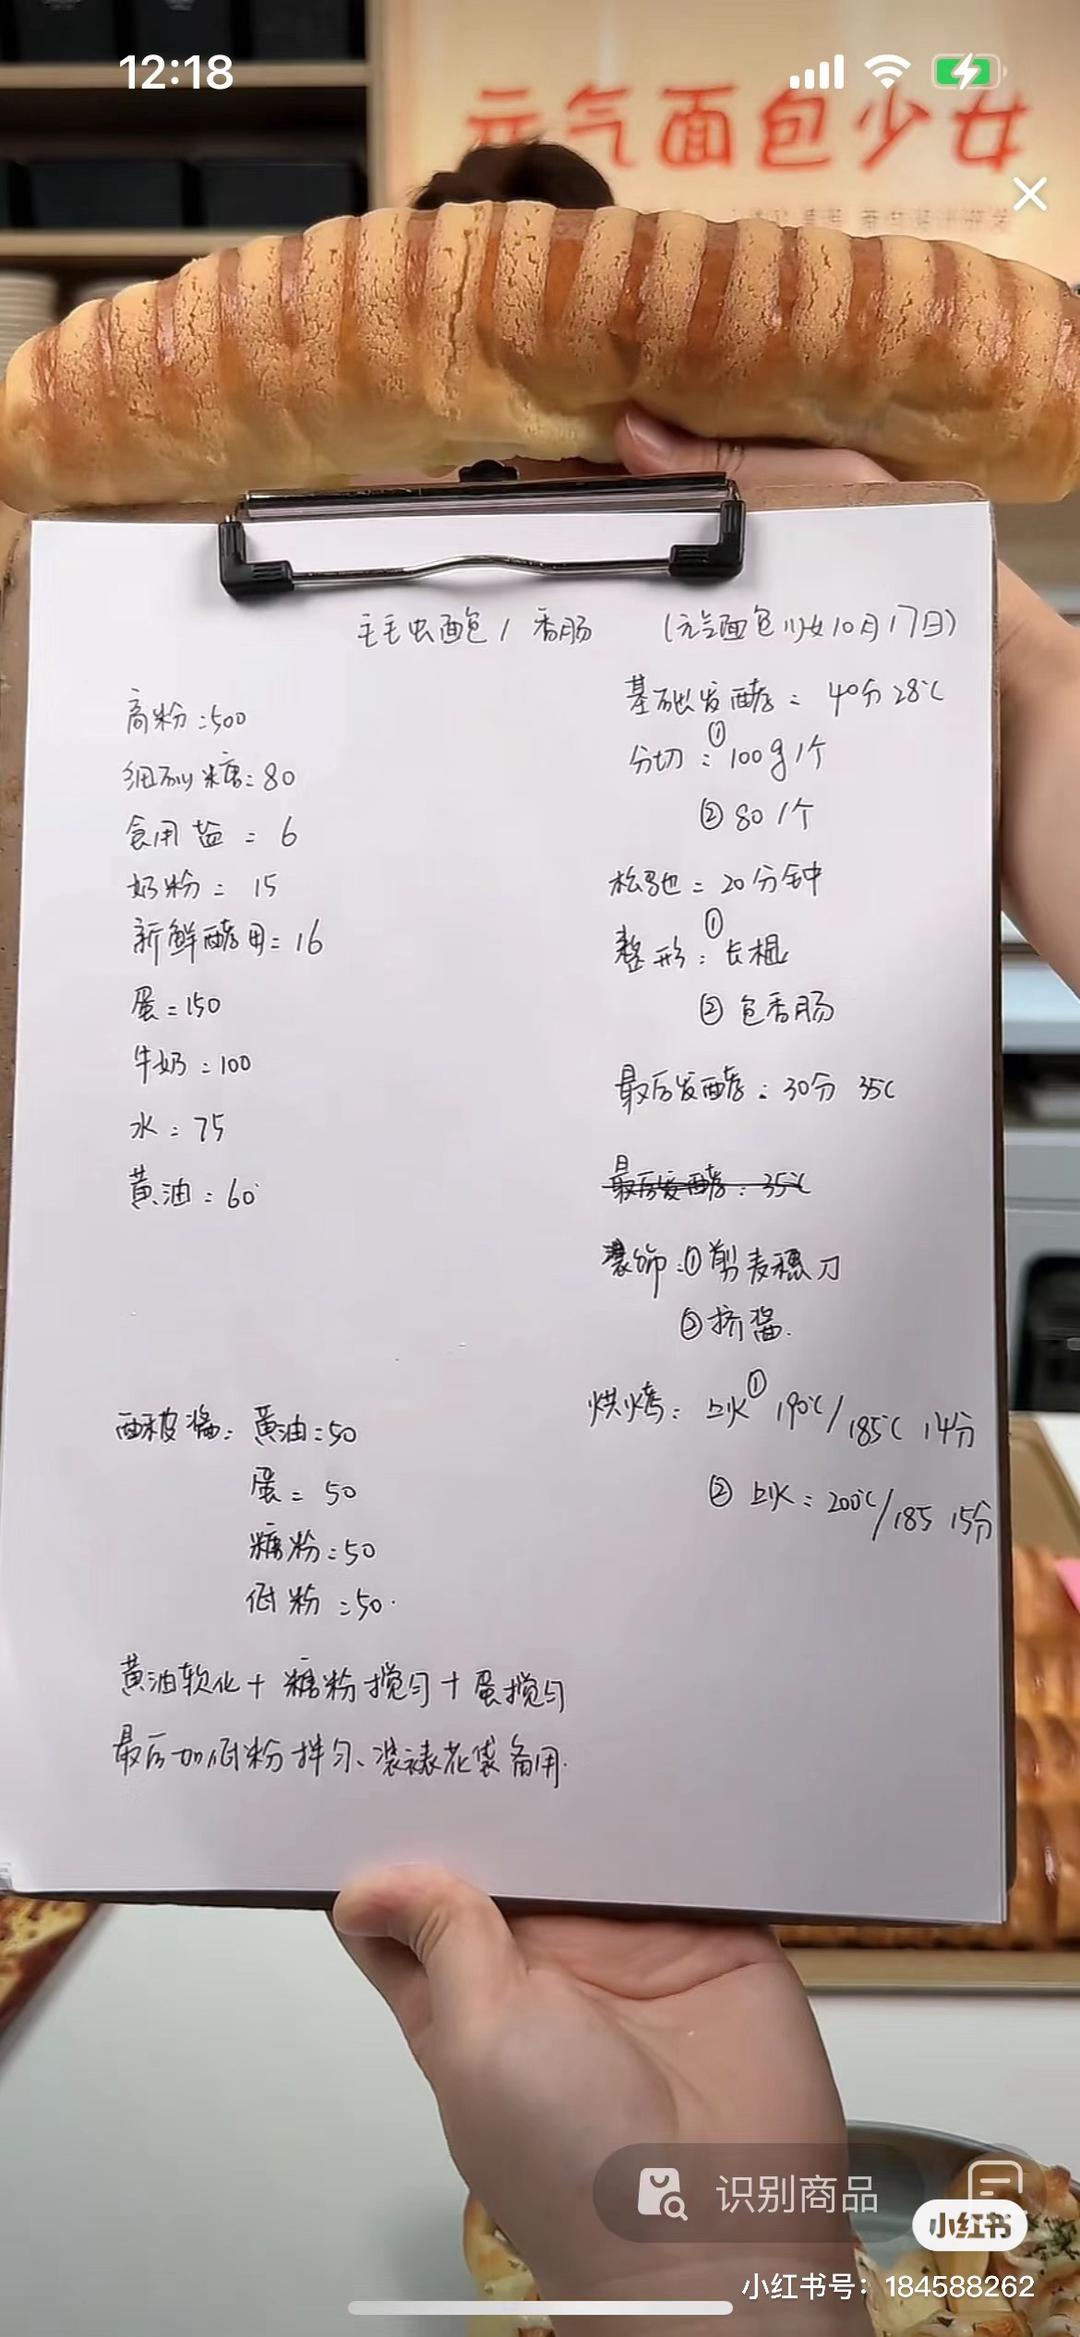 12:18
元气面包少女
毛毛虫面包 / 香肠 (元气面包少女10月17日)
高粉:500
细砂糖:80
食用盐 = 6
奶粉 = 15
新鲜酵母=16
蛋=150
牛奶:100
水:75
黄油:60
基础发酵: 40分 28℃
分切:① 100g 1个
② 80 1个
松弛=20分钟
整形:① 长棍
② 包香肠
最后发酵:30分 35℃
最后发酵:35℃
装饰:①剪麦穗刀
②挤酱.
烘烤:上火① 190℃/185℃ 14分
② 上火:200℃/185 15分
酥皮酱:黄油=50
蛋= 50
糖粉=50
低粉=50.
黄油软化+糖粉搅匀+蛋搅匀
最后加低粉拌匀、装裱花袋备用.
识别商品
小红书
小红书号:184588262